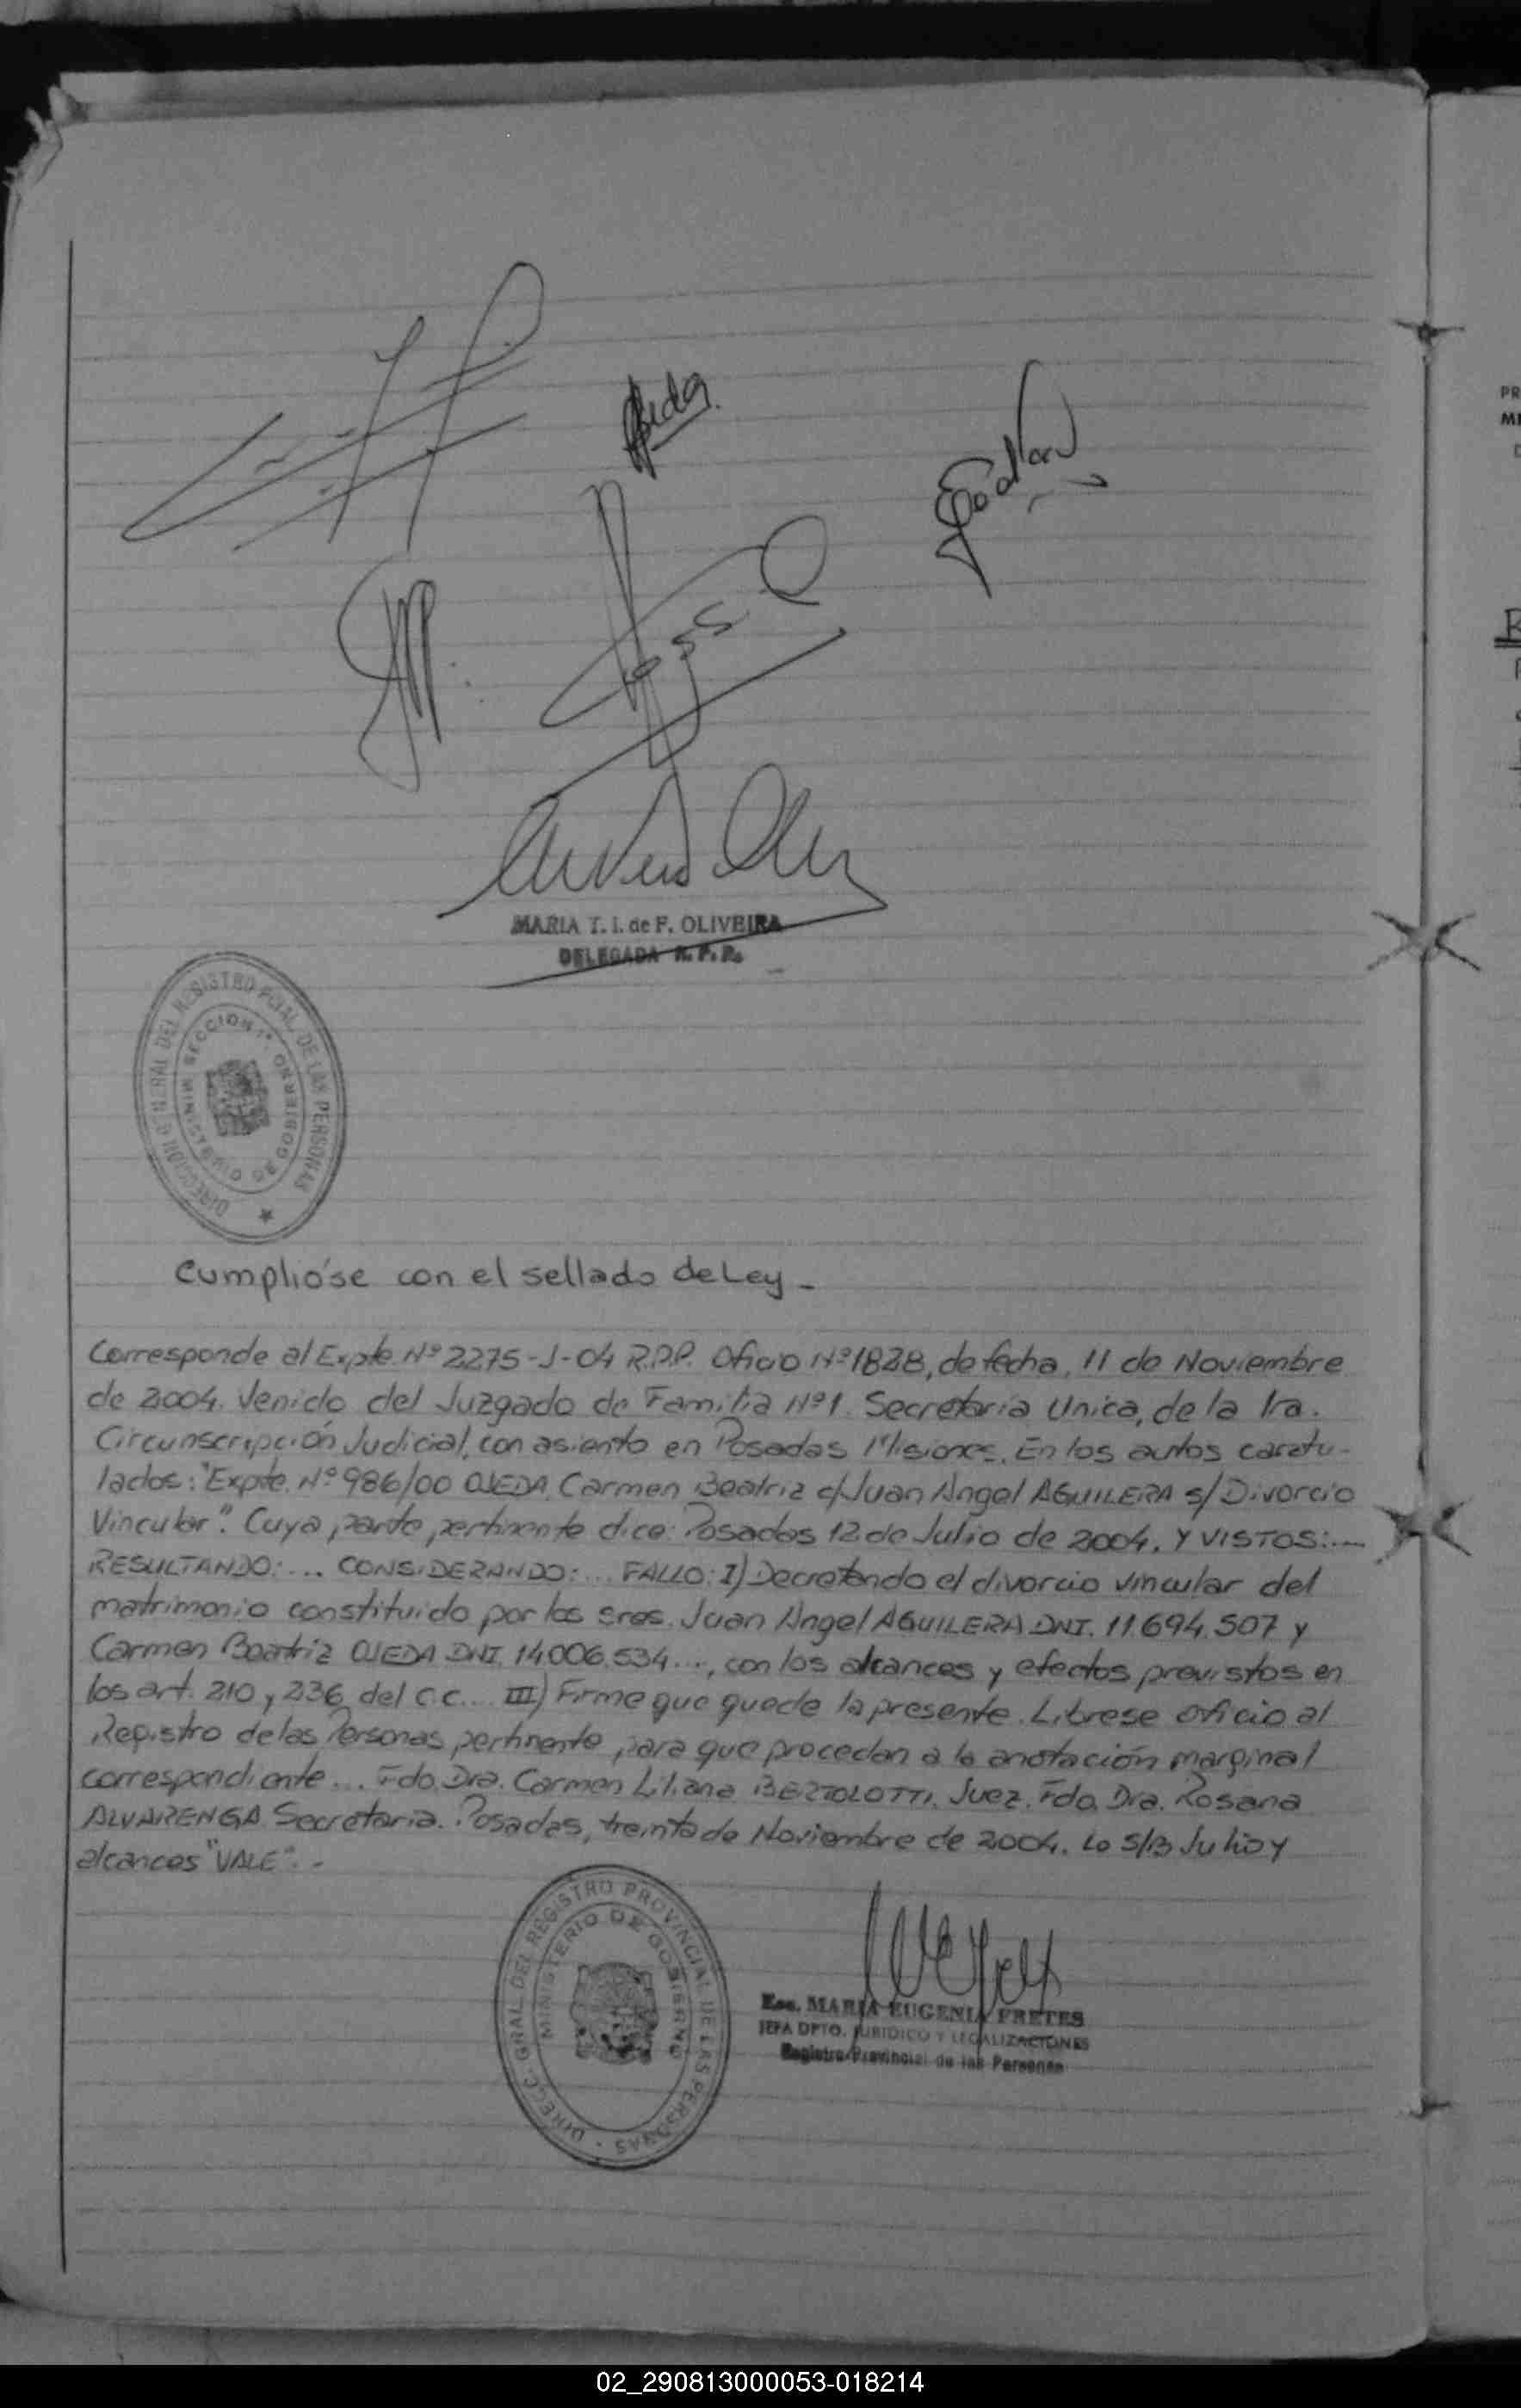 Ojeda
MARIA T. I. de F. OLIVEIRA
DELEGADA R. P. P.
DIRECCION GENERAL DEL REGISTRO PCIAL. DE LAS PERSONAS
MINISTERIO DE GOBIERNO
SECCION 1ª
Cumplióse con el sellado de Ley -
Corresponde al Expte. Nº 2275-J-04 R.P.P. Oficio Nº 1828, de fecha, 11 de Noviembre
de 2004. Venido del Juzgado de Familia Nº 1. Secretaría Unica, de la 1ra.
Circunscripción Judicial, con asiento en Posadas Misiones. En los autos caratu-
lados: "Expte. Nº 986/00 OJEDA, Carmen Beatriz c/Juan Angel AGUILERA s/ Divorcio
Vincular". Cuya parte pertinente dice: Posadas 12 de Julio de 2004. Y VISTOS:...
RESULTANDO:... CONSIDERANDO:... FALLO: I) Decretando el divorcio vincular del
matrimonio constituido por los sres. Juan Angel AGUILERA DNI. 11.694.507 y
Carmen Beatriz OJEDA DNI. 14.006.534..., con los alcances y efectos previstos en
los art. 210 y 236 del C.C.... III) Firme que quede la presente. Librese oficio al
Registro de las Personas pertinente para que procedan a la anotación marginal
correspondiente... Fdo. Dra. Carmen Liliana BERTOLOTTI. Juez. Fdo. Dra. Rosana
ALVARENGA Secretaria. Posadas, treinta de Noviembre de 2004. Lo S/B Julio y
alcances "VALE".-
DIRECC. GRAL. DEL REGISTRO PROVINCIAL DE LAS PERSONAS
MINISTERIO DE GOBIERNO
Esc. MARIA EUGENIA FRETES
JEFA DPTO. JURIDICO Y LEGALIZACIONES
Registro Provincial de las Personas
PR
MI
02_290813000053-018214